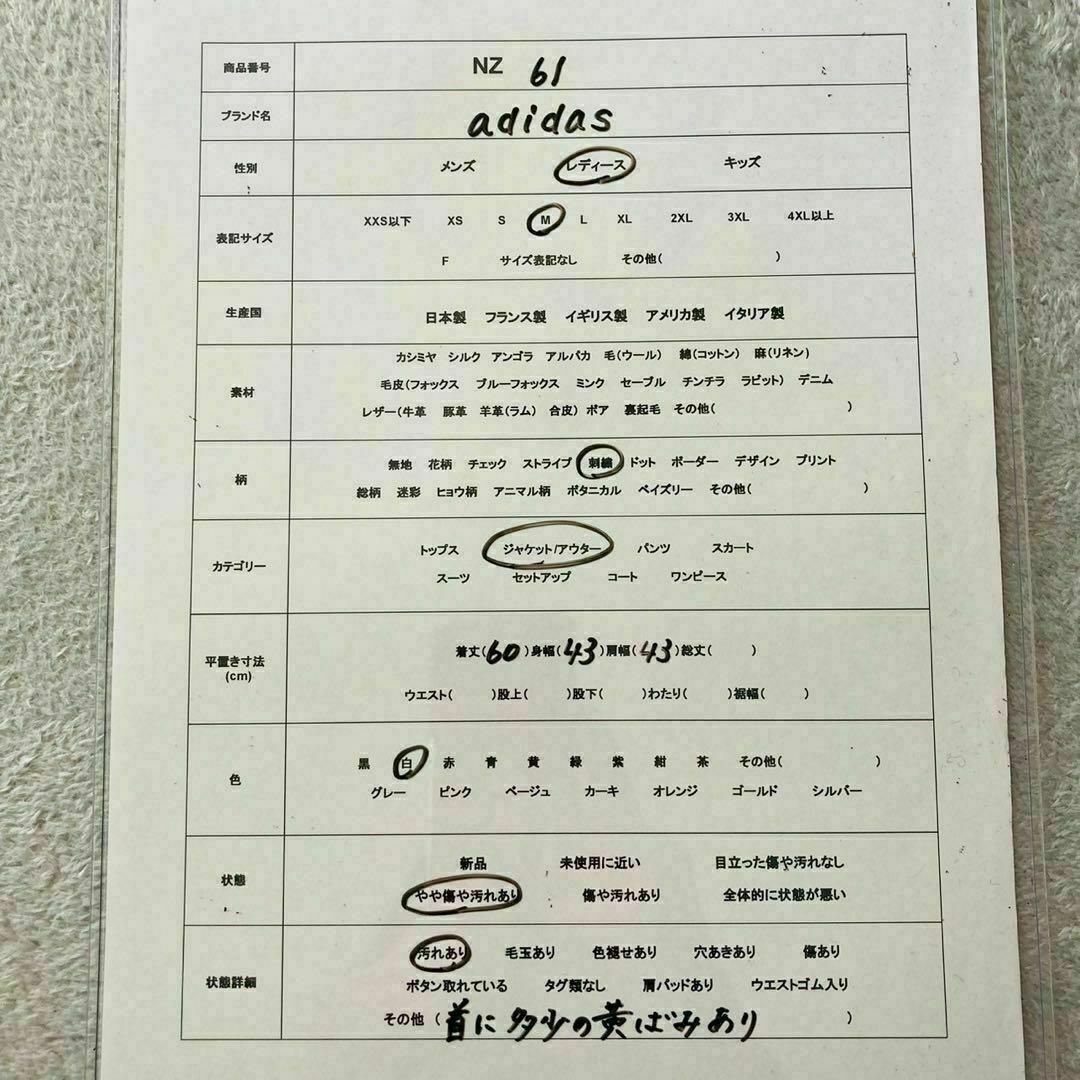 商品番号 NZ 61
ブランド名 adidas
性別 メンズ レディース キッズ
表記サイズ XXS以下 XS S M L XL 2XL 3XL 4XL以上
F サイズ表記なし その他( )
生産国 日本製 フランス製 イギリス製 アメリカ製 イタリア製
素材 カシミヤ シルク アンゴラ アルパカ 毛(ウール) 綿(コットン) 麻(リネン)
毛皮(フォックス ブルーフォックス ミンク セーブル チンチラ ラビット) デニム
レザー(牛革 豚革 羊革(ラム) 合皮) ボア 裏起毛 その他( )
柄 無地 花柄 チェック ストライプ 刺繍 ドット ボーダー デザイン プリント
総柄 迷彩 ヒョウ柄 アニマル柄 ボタニカル ペイズリー その他( )
カテゴリー トップス ジャケット/アウター パンツ スカート
スーツ セットアップ コート ワンピース
平置き寸法 (cm) 着丈(60)身幅(43)肩幅(43)総丈( )
ウエスト( )股上( )股下( )わたり( )裾幅( )
色 黒 白 赤 青 黄 緑 紫 紺 茶 その他( )
グレー ピンク ベージュ カーキ オレンジ ゴールド シルバー
状態 新品 未使用に近い 目立った傷や汚れなし
やや傷や汚れあり 傷や汚れあり 全体的に状態が悪い
状態詳細 汚れあり 毛玉あり 色褪せあり 穴あきあり 傷あり
ボタン取れている タグ類なし 肩パッドあり ウエストゴム入り
その他 (首に多少の黄ばみあり)